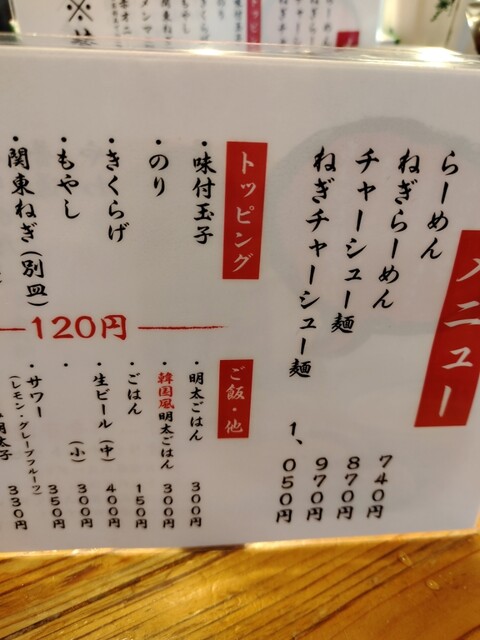 メニュー
らーめん 740円
ねぎらーめん 870円
チャーシュー麺 970円
ねぎチャーシュー麺 1、050円
トッピング
・味付玉子
・のり
・きくらげ
・もやし
・関東ねぎ(別皿)
120円
ご飯・他
・明太ごはん 300円
・韓国風明太ごはん 300円
・ごはん 150円
・生ビール(中) 400円
・ (小) 300円
・サワー 350円
(レモン・グレープフルーツ)
明太子 330円